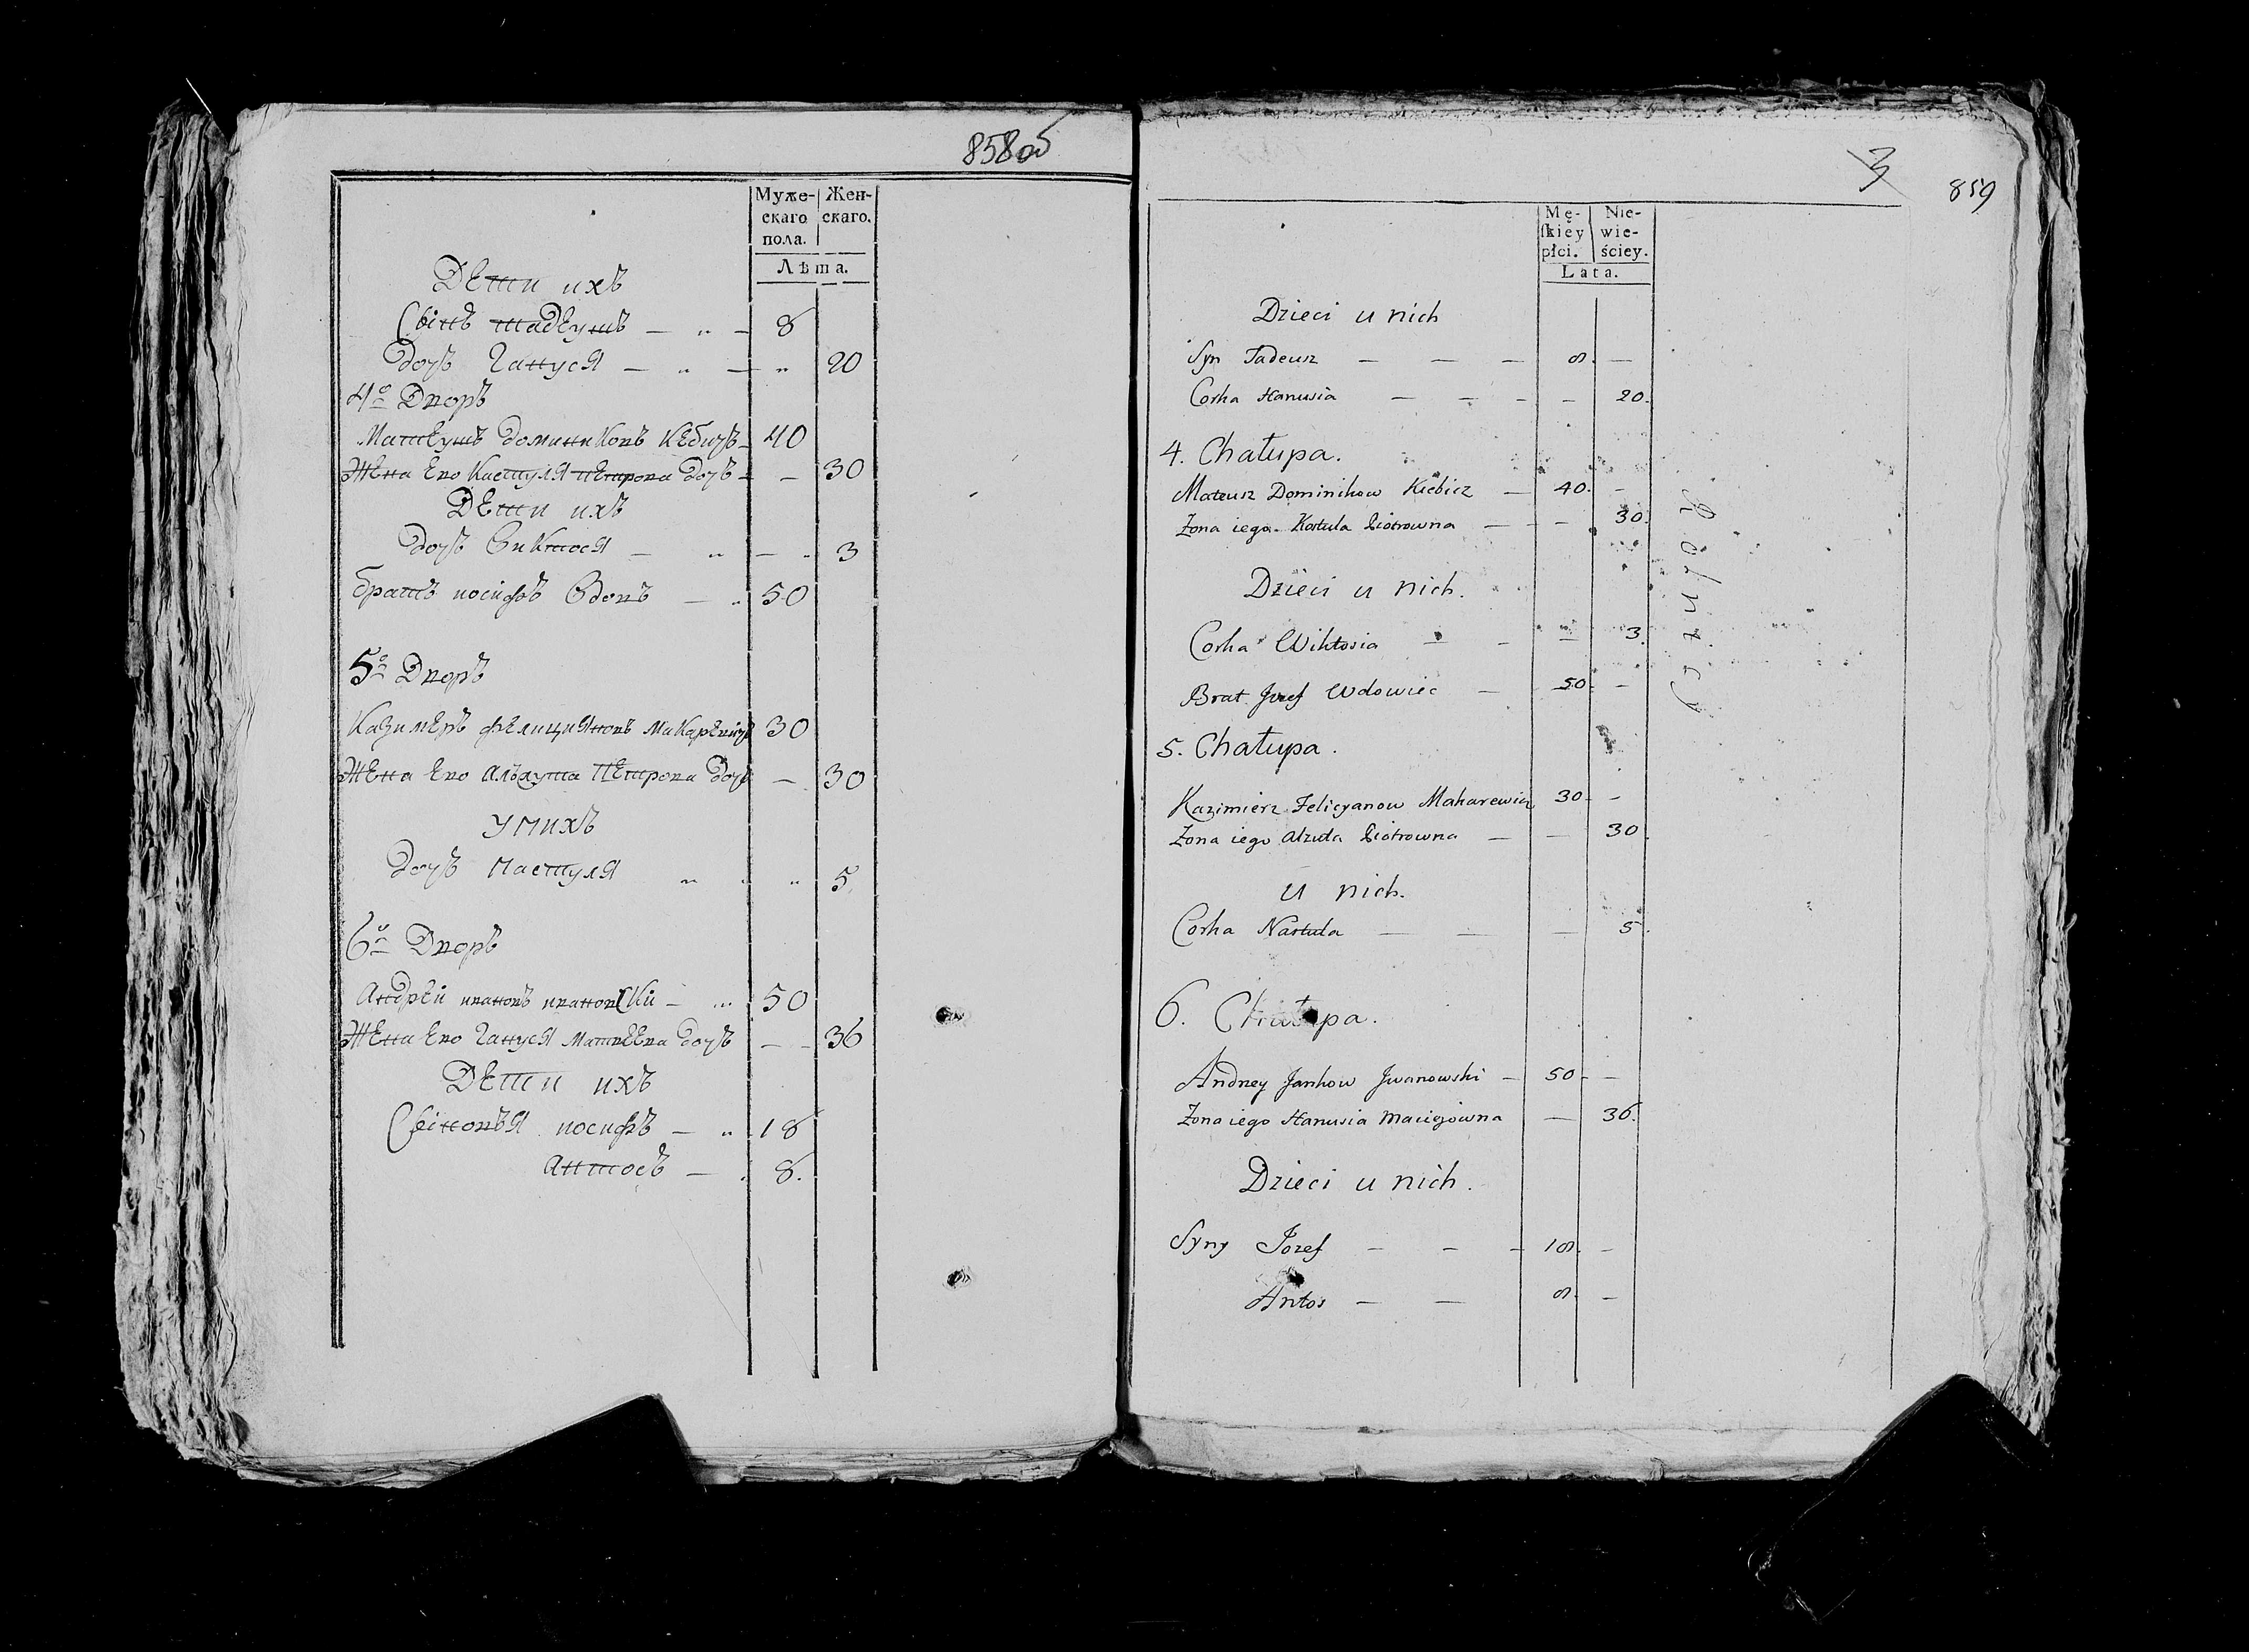 858об
Муже- Жен-
скаго скаго.
пола.
Лѣта.
Дети ихъ
Сынъ тадеушъ — „ — 8
дочъ Гануся — „ — „ 20
4й Дворъ
Матеушъ доминиковъ Кебичъ — 40
Жена Ево Кастуля петрова дочъ — — 30
Дети ихъ
дочъ Виктося — „ — „ 3
братъ иосифъ Вдовъ — „ 50
5й Дворъ
Казимеръ фелицияновъ Макаревичъ 30
Жена Ево алъжута Петрова дочъ — 30
У нихъ
дочъ настуля „ „ „ 5
6й Дворъ
Андрей ивановъ ивановски — „ 50
Жена Ево Гануся матвеева дочъ — — 36
Дети ихъ
Сыновья иосифъ — „ 18
антосъ — 8.
3 859
Mę- Nie-
ſkiey wie-
płci. ściey.
Lata.
Dzieci u nich
Syn Tadeusz — — — 8. —
Corka Hanusia — — — — 20.
4. Chałupa.
Mateusz Dominikow Kiebicz — 40. —
Zona iego Kastula Piotrowna — — 30.
Dzieci u nich.
Corka Wiktosia — — — 3.
Brat Jozef Wdowiec — 50. —
5. Chałupa.
Kazimierz Felicyanow Makarewicz 30. —
Zona iego Alzuta Piotrowna — — 30.
u nich.
Corka Nastula — — — 5.
6. Chałupa.
Andrzey Jankow Jwanowski — 50. —
Zona iego Hanusia Macieiowna — 36.
Dzieci u nich.
Syny Jozef — — — 18. —
Antos — — 8. —